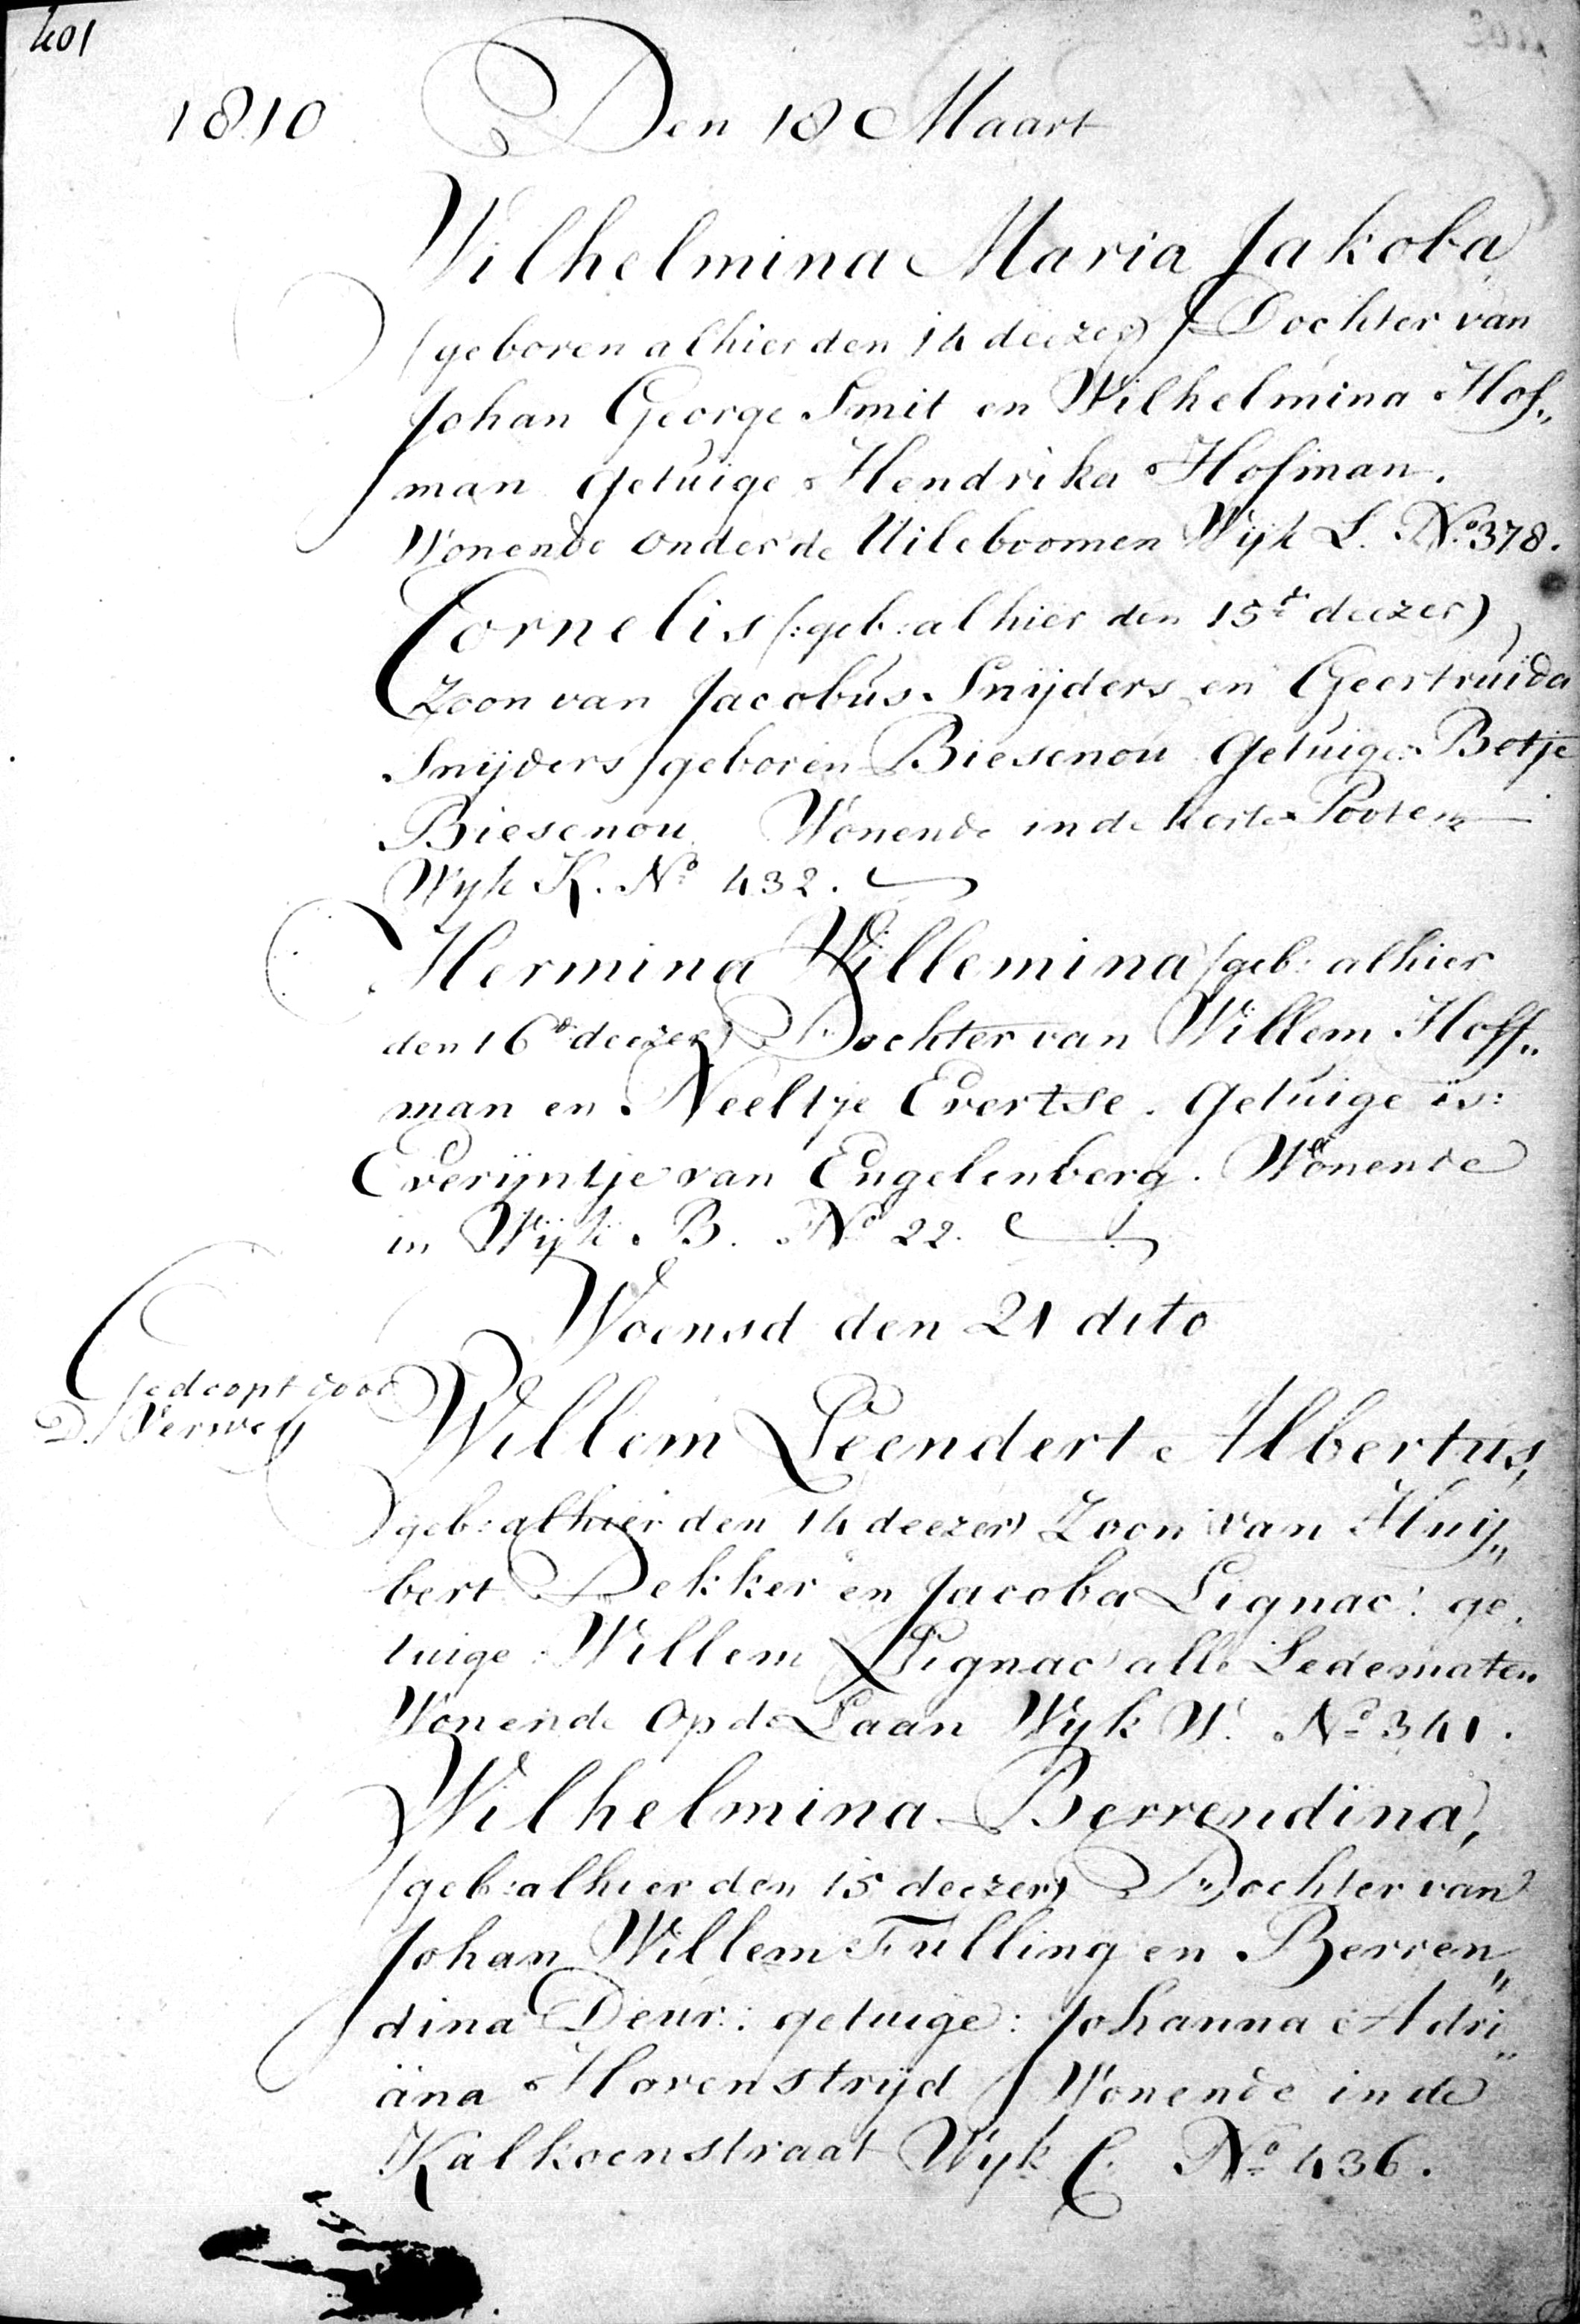 401
1810 Den 18 Maart
Wilhelmina Maria Jakoba
(geboren alhier den 14 deezer) Dochter van
Johan George Smit en Wilhelmina Hof„
man getuige Hendrika Hofman.
Wonende onder de Uileboomen Wijk L. No 378.
Cornelis (:geb: alhier den 15de deezer)
Zoon van Jacobus Snijders en Geertruida
Snijders geboren Biesenou Getuige Betje
Biesenou. Wonende in de korte Pooten
Wyk K. No 432.
Hermina Willemina (geb: alhier
den 16de deezer) Dochter van Willem Hoff„
man en Neeltje Evertse. Getuige is:
Everijntje van Engelenberg. Wonende
in Wijk B. No 22.
Woensd den 21 dito
Gedoopt door
Ds Verwey
Willem Leendert Albertus,
(geb: alhier den 14 deezer) Zoon van Huij„
bert Dekker en Jacoba Lignac: ge„
tuige: Willem Lignac alle Ledematen
Wonende op de Laan Wyk W. No 341.
Wilhelmina Berrendina,
(geb: alhier den 15 deezer) Dochter van
Johan Willem Fulling en Berren„
dina Deur: getuige: Johanna Adri„
ana Havenstrijd Wonende in de
Kalkoenstraat Wyk C. No 436.